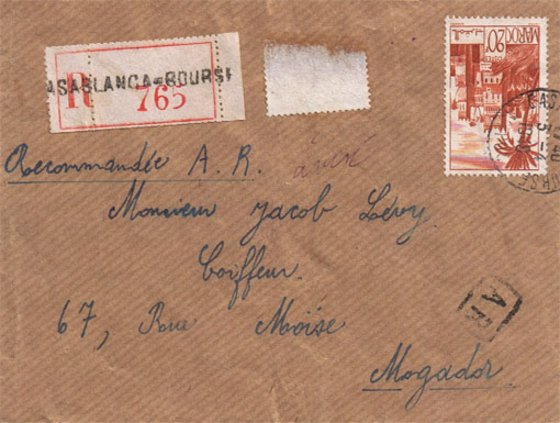 CASABLANCA-BOURSE
R 765
MAROC 20F
Recommandée A. R. avisé
Monsieur Jacob Lévy.
Coiffeur.
67, Rue Moïse
A.R
Mogador.